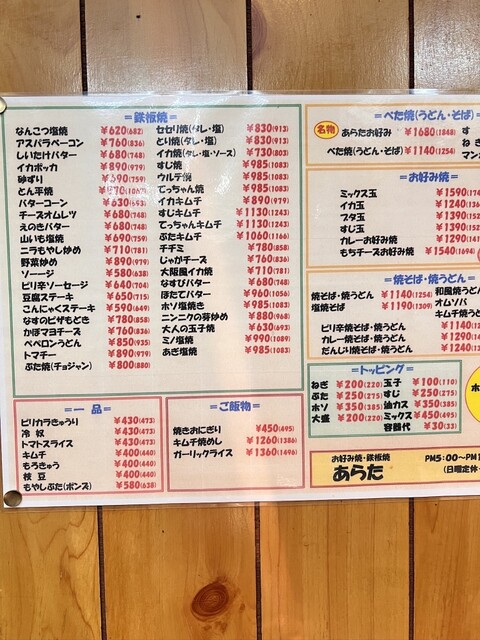 =鉄板焼=
なんこつ塩焼 ¥620(682)
アスパラベーコン ¥760(836)
しいたけバター ¥680(748)
イカポッカ ¥890(979)
砂ずり ¥690(759)
とん平焼 ¥970(1067)
バターコーン ¥630(693)
チーズオムレツ ¥680(748)
えのきバター ¥680(748)
山いも塩焼 ¥690(759)
ニラもやし炒め ¥710(781)
野菜炒め ¥890(979)
ソーセージ ¥580(638)
ピリ辛ソーセージ ¥640(704)
豆腐ステーキ ¥650(715)
こんにゃくステーキ ¥590(649)
なすのピザもどき ¥780(858)
かぼマヨチーズ ¥760(836)
ペペロンうどん ¥850(935)
トマチー ¥890(979)
ぶた焼(チョジャン) ¥800(880)
セセリ焼(タレ・塩) ¥830(913)
とり焼(タレ・塩) ¥830(913)
イカ焼(タレ・塩・ソース) ¥730(803)
すじ焼 ¥985(1083)
ウルテ焼 ¥985(1083)
てっちゃん焼 ¥985(1083)
イカキムチ ¥890(979)
すじキムチ ¥1130(1243)
てっちゃんキムチ ¥1130(1243)
ぶたキムチ ¥1060(1166)
チヂミ ¥780(858)
じゃがチーズ ¥760(836)
大阪風イカ焼 ¥710(781)
なすびバター ¥680(748)
ほたてバター ¥960(1056)
ホソ塩焼き ¥985(1083)
ニンニクの芽炒め ¥880(968)
大人の玉子焼 ¥630(693)
ミノ塩焼 ¥990(1089)
あぎ塩焼 ¥985(1083)
=べた焼(うどん・そば)=
名物 あらたお好み ¥1680(1848)
べた焼(うどん・そば) ¥1140(1254)
す
ねぎ
マン
=お好み焼=
ミックス玉 ¥1590(174
イカ玉 ¥1240(136
ブタ玉 ¥1390(152
すじ玉 ¥1390(152
カレーお好み焼 ¥1290(141
もちチーズお好み焼 ¥1540(1694)
=焼そば・焼うどん=
焼そば・焼うどん ¥1140(1254)
塩焼そば ¥1190(1309)
和風焼うどん
オムソバ
キムチ焼うど
ピリ辛焼そば・焼うどん ¥1140(12
カレー焼そば・焼うどん ¥1290(1
だんじり焼そば・焼うどん ¥1240(13
=トッピング=
ねぎ ¥200(220) 玉子 ¥100(110)
ぶた ¥250(275) すじ ¥250(275)
ホソ ¥350(385) 油カス ¥350(385)
大盛 ¥200(220) ミックス ¥450(495)
容器代 ¥30(33)
ホ
=一品=
ピリカラきゅうり ¥430(473)
冷奴 ¥430(473)
トマトスライス ¥430(473)
キムチ ¥400(440)
もろきゅう ¥400(440)
枝豆 ¥400(440)
もやしぶた(ポンズ) ¥580(638)
=ご飯物=
焼きおにぎり ¥450(495)
キムチ焼めし ¥1260(1386)
ガーリックライス ¥1360(1496)
お好み焼・鉄板焼
あらた
PM5:00〜PM1
(日曜定休・